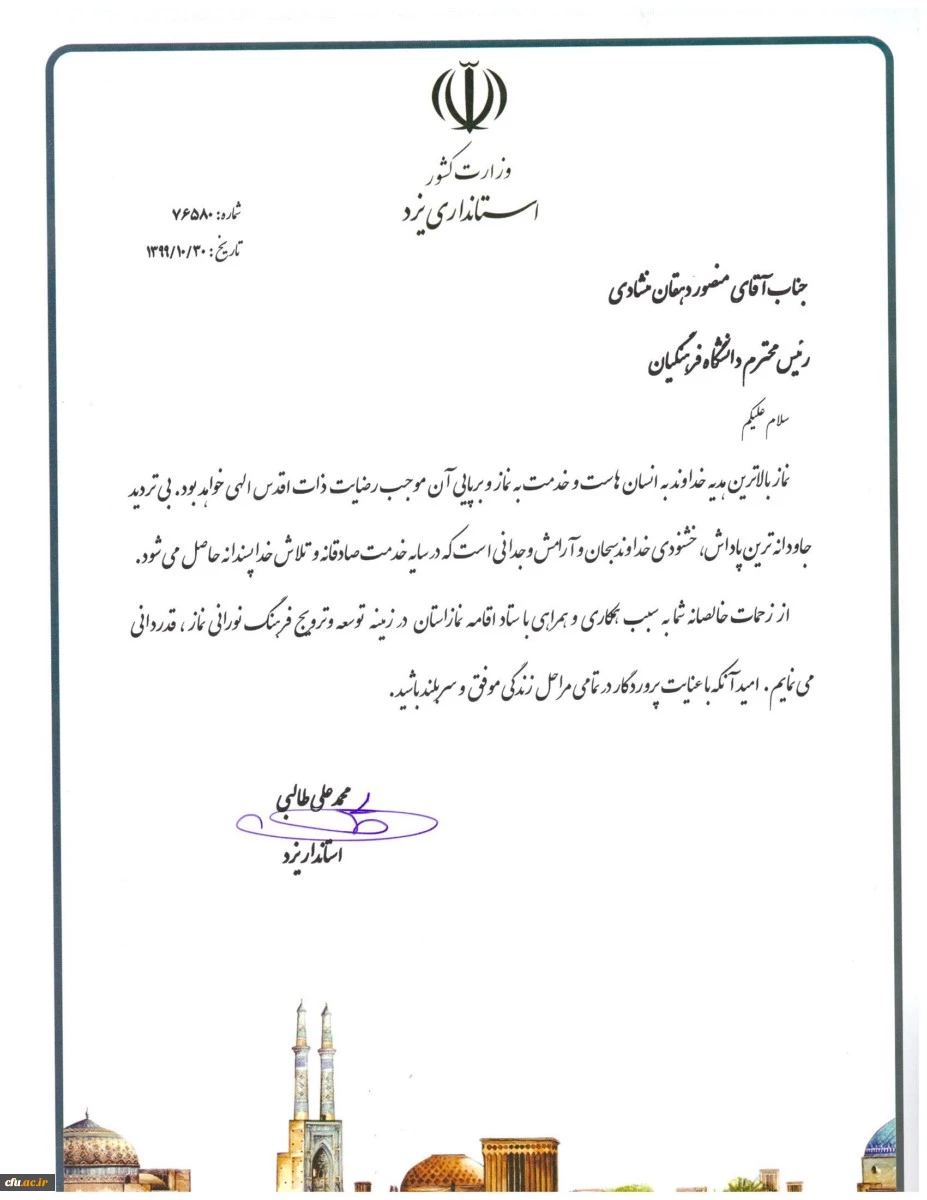 وزارت کشور
استانداری یزد
شماره: ۷۶۵۸۰
تاریخ: ۱۳۹۹/۱۰/۳۰
جناب آقای منصور دهقان منشادی
رئیس محترم دانشگاه فرهنگیان
سلام علیکم
نماز بالاترین هدیه خداوند به انسان هاست و خدمت به نماز و برپایی آن موجب رضایت ذات اقدس الهی خواهد بود. بی تردید
جاودانه ترین پاداش، خشنودی خداوند سبحان و آرامش وجدانی است که در سایه خدمت صادقانه و تلاش خداپسندانه حاصل می شود.
از زحمات خالصانه شما به سبب همکاری و همراهی با ستاد اقامه نماز استان در زمینه توسعه و ترویج فرهنگ نورانی نماز، قدردانی
می نمایم. امید آنکه با عنایت پروردگار در تمامی مراحل زندگی موفق و سربلند باشید.
محمد علی طالبی
استاندار یزد
cfu.ac.ir